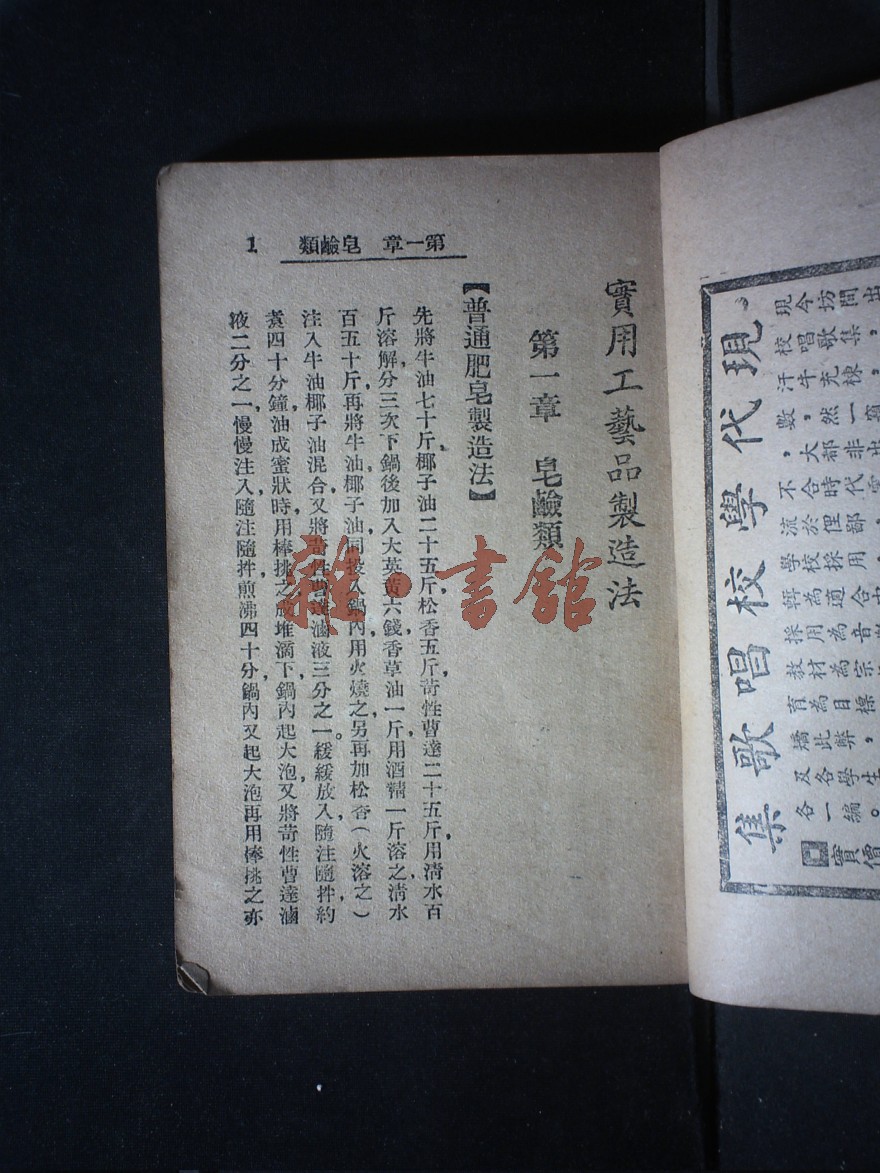 現代學校唱歌集
現今坊間出
校唱歌集，
汗牛充棟
數，然一
大都非出
不合時代
流於俚鄙
學校採用
輯為適合
採用為音
教材為宗
育為目標
矯此弊，
及各學生
各一編。
實價
實用工藝品製造法
第一章　皂鹼類
1　第一章　皂鹼類
【普通肥皂製造法】
先將牛油七十斤，椰子油二十五斤，松香五斤，苛性曹達二十五斤，用清水百
斤溶解，分三次下鍋後，加入大英黃六錢，香草油一斤，用酒精一斤溶之，清水
百五十斤，再將牛油椰子油同投入鍋內，用火燒之，另再加松香（火溶之）
注入牛油椰子油混合，又將苛性曹達滷液三分之一，緩緩放入，隨注隨拌，約
煮四十分鐘，油成蜜狀時，用棒挑之，成堆滴下，鍋內起大泡，又將苛性曹達滷
液二分之一，慢慢注入，隨注隨拌，煎沸四十分，鍋內又起大泡，再用棒挑之，亦
雜·書館